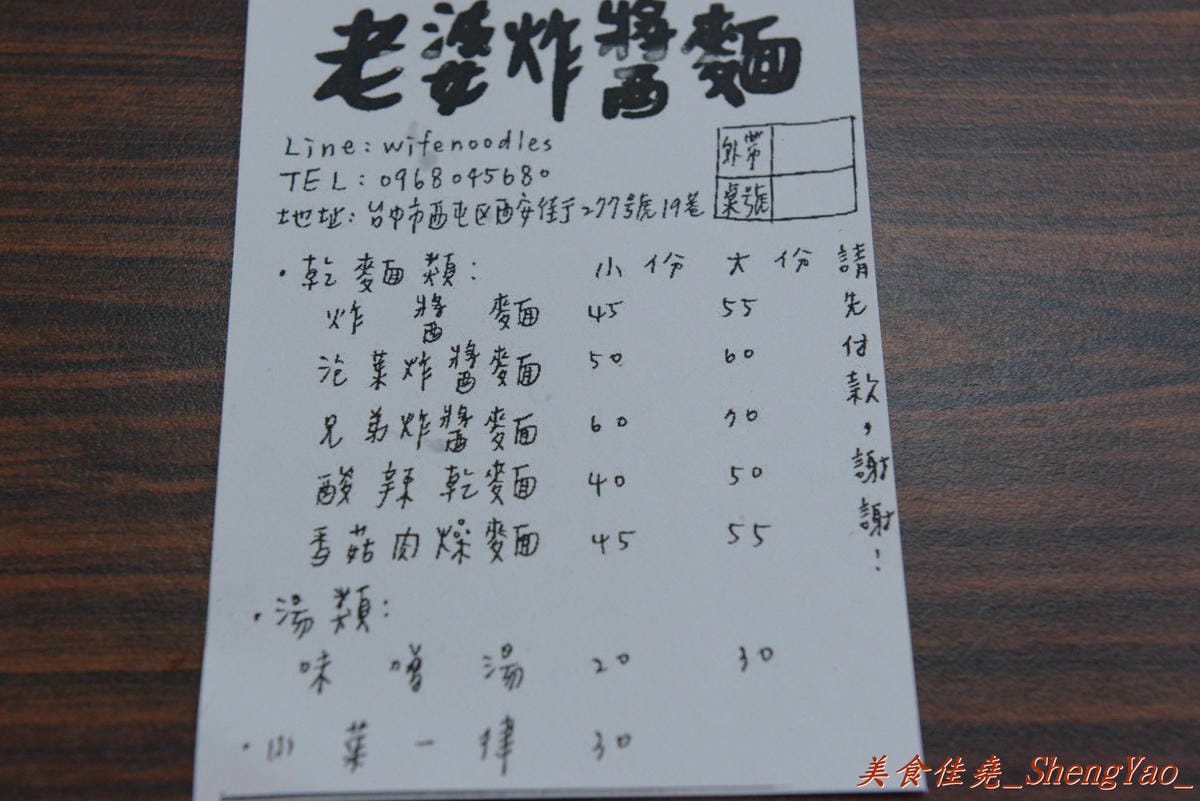 老婆炸醬麵
Line: wifenoodles
TEL: 0968045680
地址: 台中市西屯区西安街277號19巷
外帶
桌號
·乾麵類: 小份 大份
炸醬麵 45 55
泡菜炸醬麵 50 60
兄弟炸醬麵 60 70
酸辣乾麵 40 50
香菇肉燥麵 45 55
·湯類:
味噌湯 20 30
·小菜一律 30
請先付款,謝謝!
美食佳堯_ShengYao_